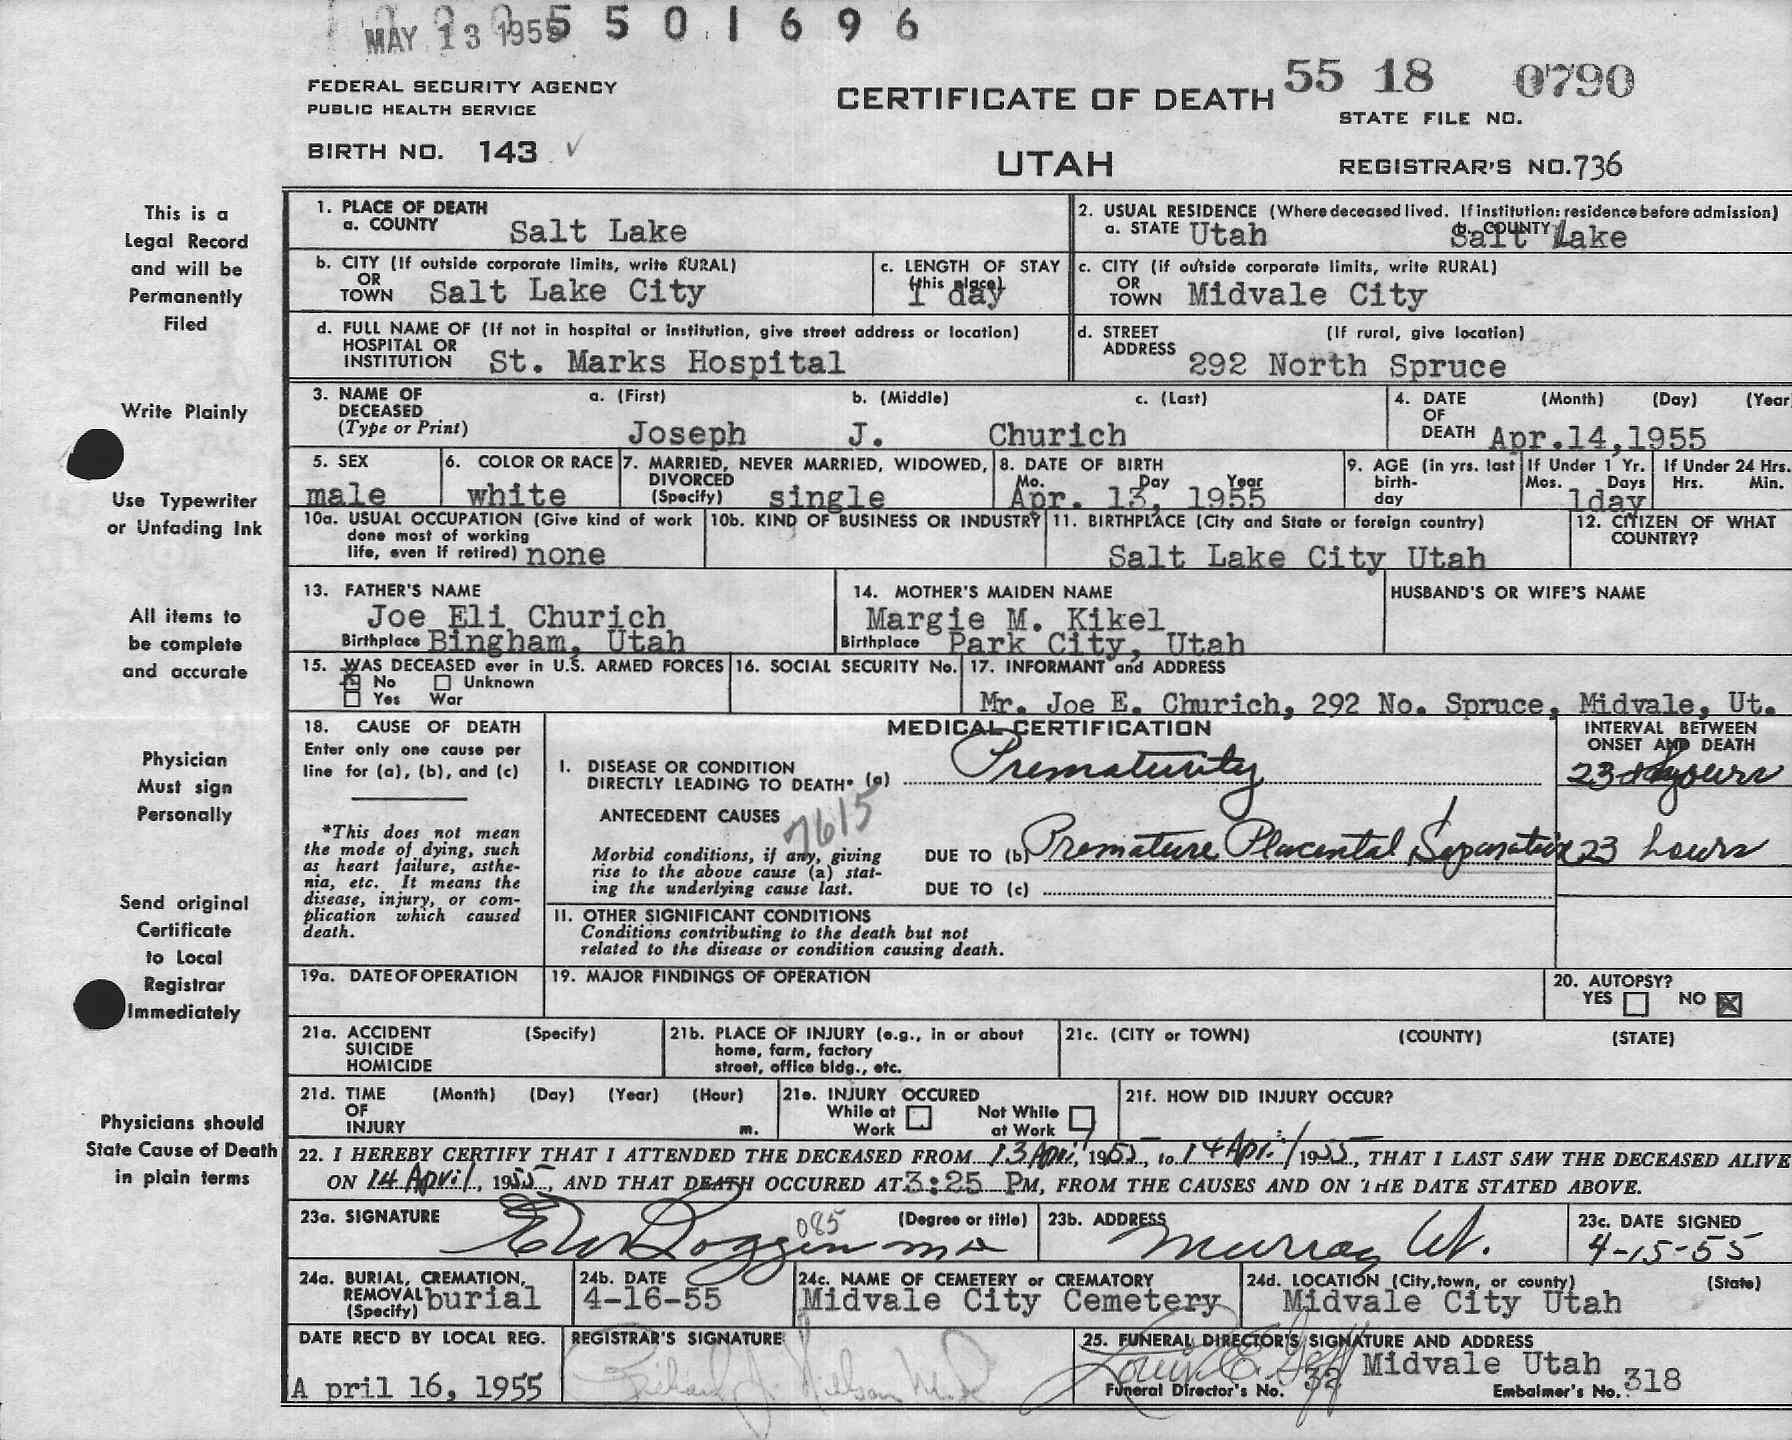 MAY 13 1955 5 5 0 1 6 9 6
FEDERAL SECURITY AGENCY
PUBLIC HEALTH SERVICE
BIRTH NO. 143 ✓
CERTIFICATE OF DEATH
UTAH
55 18 0790
STATE FILE NO.
REGISTRAR'S NO. 736
This is a
Legal Record
and will be
Permanently
Filed
Write Plainly
Use Typewriter
or Unfading Ink
All items to
be complete
and accurate
Physician
Must sign
Personally
Send original
Certificate
to Local
Registrar
Immediately
Physicians should
State Cause of Death
in plain terms
1. PLACE OF DEATH
a. COUNTY Salt Lake
2. USUAL RESIDENCE (Where deceased lived. If institution: residence before admission)
a. STATE Utah b. COUNTY Salt Lake
b. CITY (If outside corporate limits, write RURAL)
OR
TOWN Salt Lake City
c. LENGTH OF STAY
(this place)
1 day
c. CITY (If outside corporate limits, write RURAL)
OR
TOWN Midvale City
d. FULL NAME OF (If not in hospital or institution, give street address or location)
HOSPITAL OR
INSTITUTION St. Marks Hospital
d. STREET (If rural, give location)
ADDRESS 292 North Spruce
3. NAME OF a. (First) b. (Middle) c. (Last)
DECEASED
(Type or Print) Joseph J. Churich
4. DATE (Month) (Day) (Year
OF
DEATH Apr.14,1955
5. SEX
male
6. COLOR OR RACE
white
7. MARRIED, NEVER MARRIED, WIDOWED,
DIVORCED
(Specify) single
8. DATE OF BIRTH
Mo. Day Year
Apr. 13, 1955
9. AGE (in yrs. last
birth-
day
If Under 1 Yr.
Mos. Days
1day
If Under 24 Hrs.
Hrs. Min.
10a. USUAL OCCUPATION (Give kind of work
done most of working
life, even if retired) none
10b. KIND OF BUSINESS OR INDUSTRY
11. BIRTHPLACE (City and State or foreign country)
Salt Lake City Utah
12. CITIZEN OF WHAT
COUNTRY?
13. FATHER'S NAME
Joe Eli Churich
Birthplace Bingham, Utah
14. MOTHER'S MAIDEN NAME
Margie M. Kikel
Birthplace Park City, Utah
HUSBAND'S OR WIFE'S NAME
15. WAS DECEASED ever in U.S. ARMED FORCES
No Unknown
Yes War
16. SOCIAL SECURITY No.
17. INFORMANT and ADDRESS
Mr. Joe E. Churich, 292 No. Spruce, Midvale, Ut.
18. CAUSE OF DEATH
Enter only one cause per
line for (a), (b), and (c)
*This does not mean
the mode of dying, such
as heart failure, asthe-
nia, etc. It means the
disease, injury, or com-
plication which caused
death.
MEDICAL CERTIFICATION
INTERVAL BETWEEN
ONSET AND DEATH
I. DISEASE OR CONDITION
DIRECTLY LEADING TO DEATH* (a) Prematurity 23 hours
ANTECEDENT CAUSES 7615
Morbid conditions, if any, giving
rise to the above cause (a) stat-
ing the underlying cause last.
DUE TO (b) Premature Placental Separation 23 hours
DUE TO (c)
II. OTHER SIGNIFICANT CONDITIONS
Conditions contributing to the death but not
related to the disease or condition causing death.
19a. DATE OF OPERATION
19. MAJOR FINDINGS OF OPERATION
20. AUTOPSY?
YES NO
21a. ACCIDENT (Specify)
SUICIDE
HOMICIDE
21b. PLACE OF INJURY (e.g., in or about
home, farm, factory
street, office bldg., etc.
21c. (CITY or TOWN) (COUNTY) (STATE)
21d. TIME (Month) (Day) (Year) (Hour)
OF
INJURY m.
21e. INJURY OCCURED
While at Work Not While at Work
21f. HOW DID INJURY OCCUR?
22. I HEREBY CERTIFY THAT I ATTENDED THE DECEASED FROM 13 April, 1955, to 14 April 1955, THAT I LAST SAW THE DECEASED ALIVE
ON 14 April, 1955, AND THAT DEATH OCCURED AT 3:25 PM, FROM THE CAUSES AND ON THE DATE STATED ABOVE.
23a. SIGNATURE (Degree or title)
085
23b. ADDRESS
Murray Ut.
23c. DATE SIGNED
4-15-55
24a. BURIAL, CREMATION,
REMOVAL
(Specify) burial
24b. DATE
4-16-55
24c. NAME OF CEMETERY or CREMATORY
Midvale City Cemetery
24d. LOCATION (City,town, or county) (State)
Midvale City Utah
DATE REC'D BY LOCAL REG.
A pril 16, 1955
REGISTRAR'S SIGNATURE
25. FUNERAL DIRECTOR'S SIGNATURE AND ADDRESS
Midvale Utah
Funeral Director's No. 32 Embalmer's No. 318